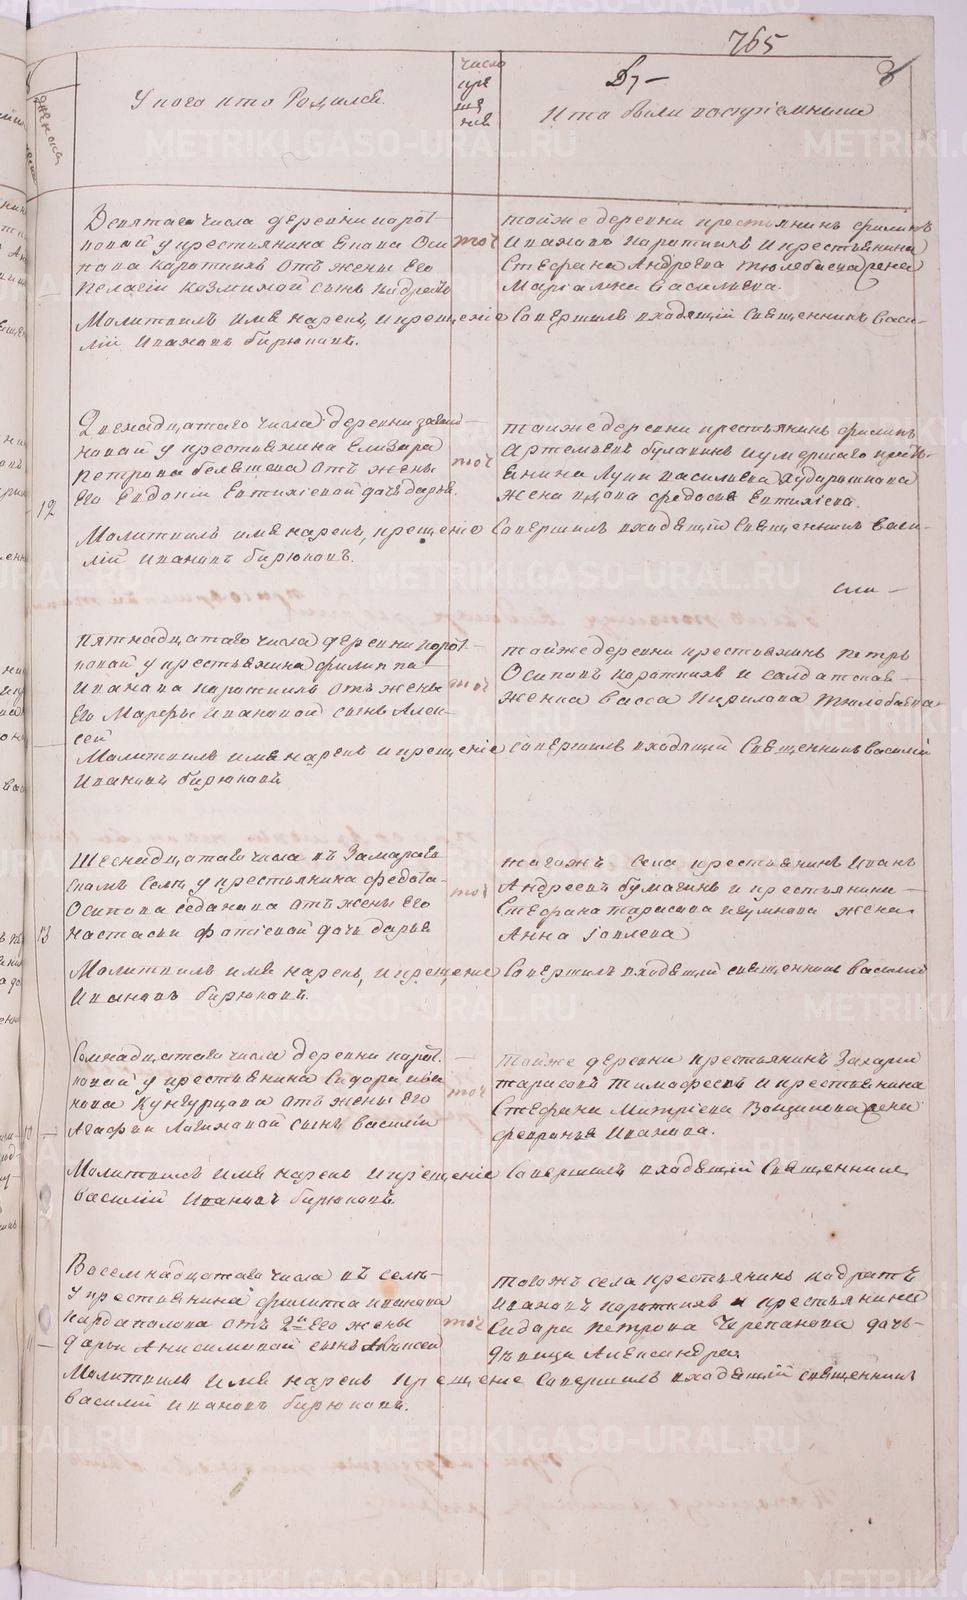 765
8
женска
У кого кто Родился.
число
кре
ще
нія
Въ
И кто были восприемники
Девятаго числа деревни корот-
ковой у крестьянина Ивана Оси
пова Короткихъ отъ жены его
Пелагіи Козминой сынъ Кодратъ
точ
тойже деревни крестьянинъ Филипъ
Ивановъ Короткихъ и крестьянина
Стефана Андреева Тюлебаева жена
Маріамна Васильева.
Молитвилъ имя нарекъ, и крещеніе совершилъ входящій Священникъ Васи-
лій Ивановъ Бирюковъ.
12
Двенадцатаго числа деревни
новой у крестьянина Елизара
Петрова отъ жены
его Евдокіи Евтихіевой дочь Дарья.
точ
тойже деревни крестьянинъ Филипъ
Артемьевъ Булакинъ и умершаго крест-
янина Луки Васильева
жена вдова Федосья Евтихіева.
Молитвилъ имя нарекъ, крещеніе совершилъ входящій Священникъ Васи-
лій Ивановъ Бирюковъ.
Пятнадцатаго числа деревни корот-
ковой у крестьянина Филиппа
Иванова Короткихъ отъ жены
его Марфы Ивановой сынъ Алек-
сей
точ
тойже деревни крестьянинъ Петръ
Осиповъ Короткихъ и солдатская
женка Васса Кирилова Тюлебаева
Молитвилъ имя нарекъ и крещеніе совершилъ входящій Священникъ Василій
Ивановъ Бирюковъ
13
Шеснадцатаго числа въ Замараев
скомъ селе у крестьянина Федота
Осипова Седанова отъ жены его
Настасьи Фотіевой дочь Дарья
точ
тогожъ села крестьянинъ Иванъ
Андреевъ Бумагинъ и крестьянина
Стефана Тарасова Игумнова жена
Анна Іовлева
Молитвилъ имя нарекъ, и крещеніе совершилъ входящій священникъ Василій
Ивановъ Бирюковъ.
10
Семнадцатаго числа деревни корот
ковой у крестьянина Сидора Ива
нова Кунгурцова отъ жены его
Агафьи сынъ Василій
точ
тойже деревни крестьянинъ Захаръ
Тарасовъ Тимофеевъ и крестьянина
Стефана Митріева жена
Февронья Иванова.
Молитвилъ имя нарекъ и крещеніе совершилъ входящій Священникъ
Василій Ивановъ Бирюковъ
11
Восемнадцатаго числа въ селе
у крестьянина Филипа Иванова
Кардаполова отъ 2й его жены
Дарьи Анисимовой сынъ Алексей
точ
тогожъ села крестьянинъ Кодратъ
Ивановъ Короткихъ и крестьянина
Сидора Петрова Черепанова дочь
девица Александра
Молитвилъ имя нарекъ крещеніе совершилъ входящій священникъ
Василій Ивановъ Бирюковъ.
METRIKI.GASO-URAL.RU